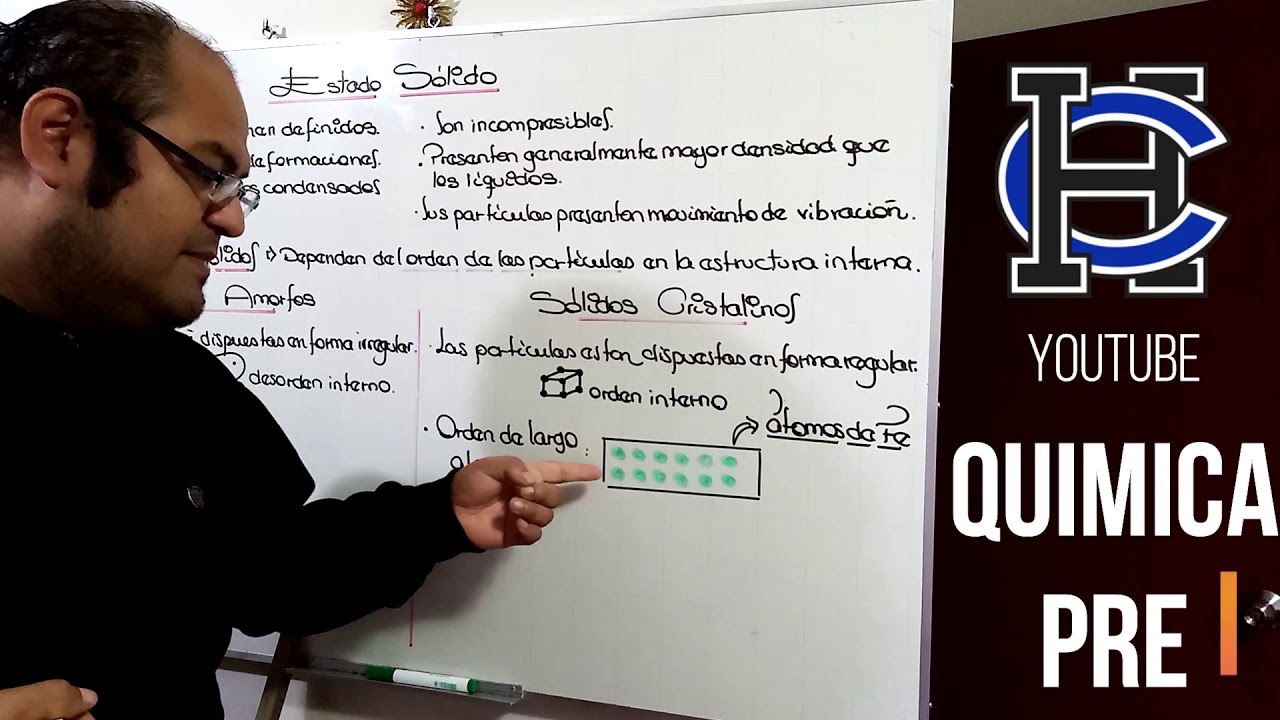 Estado Sólido
nen definidos.
deformaciones.
s condensados
· Son incompresibles.
· Presentan generalmente mayor densidad que
los líquidos.
· Sus partículas presentan movimiento de vibración.
lidos Dependen del orden de las partículas en la estructura interna.
Amorfos
dispuestas en forma irregular.
desorden interno.
Sólidos Cristalinos
· Las partículas estan dispuestas en forma regular.
orden interno
· Orden de largo
átomos de Fe
HC
YOUTUBE
QUIMICA
PRE